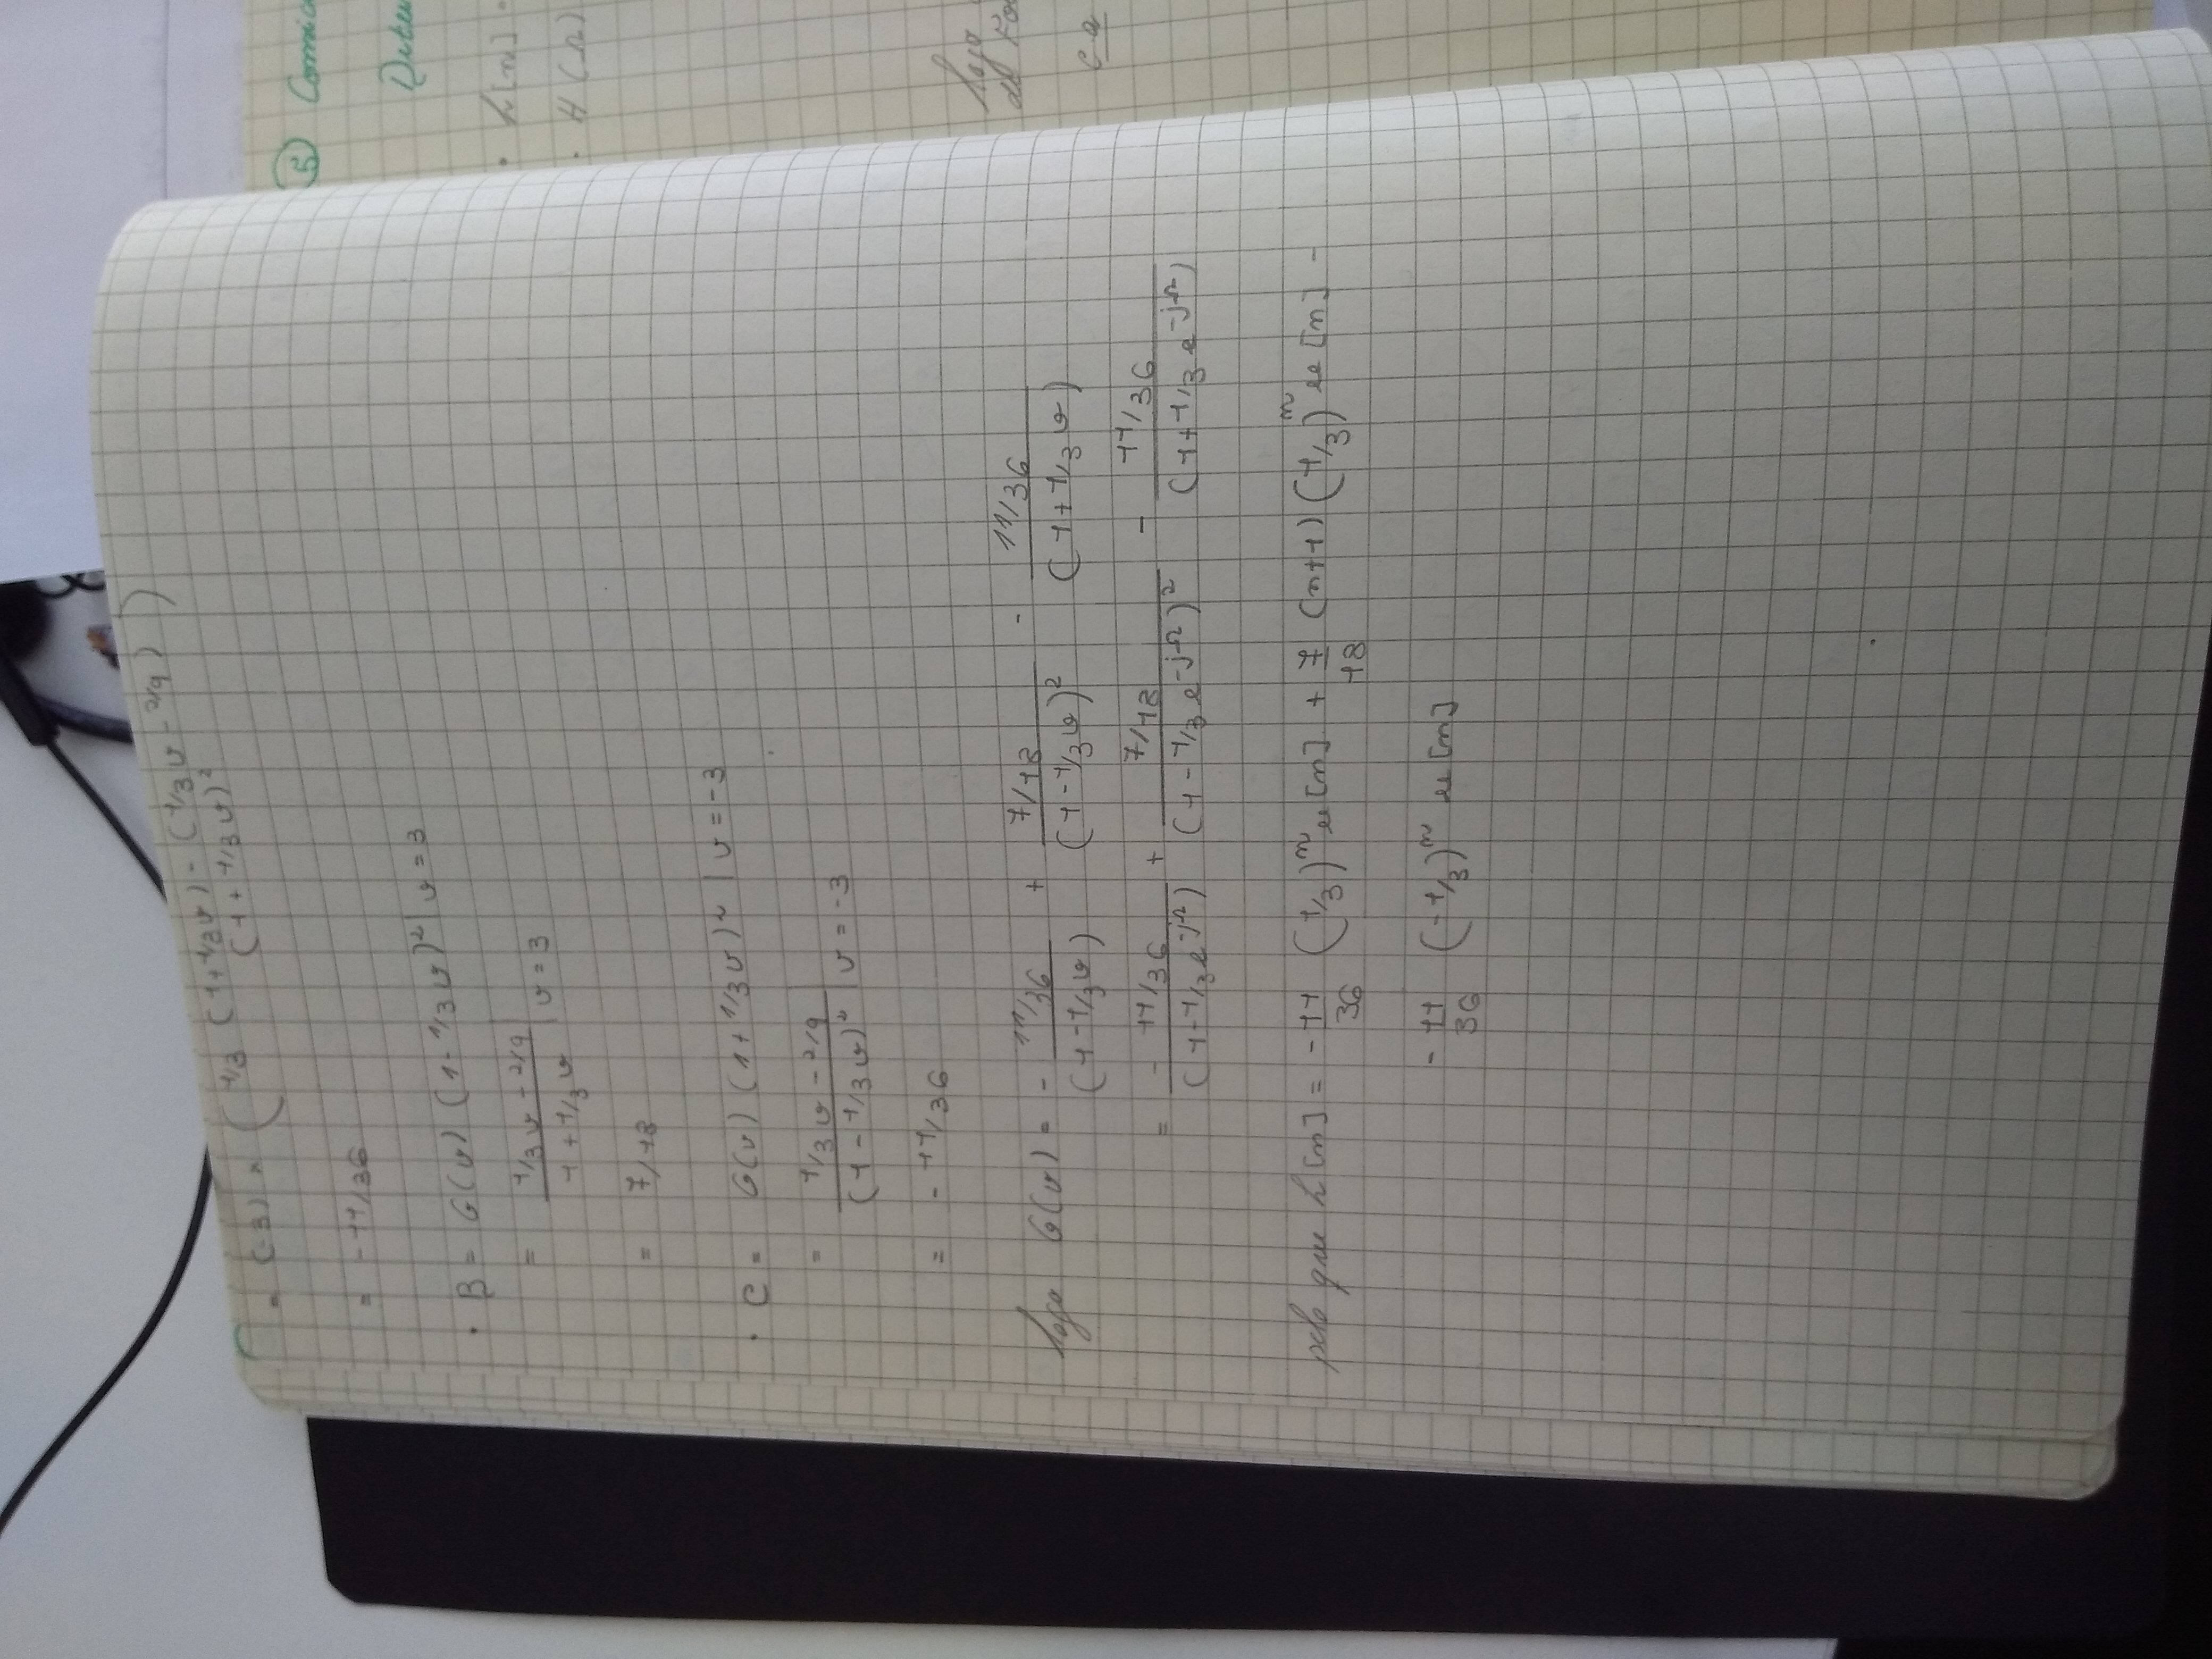 = (-3) × ( 1/3 (1+1/3v) - (1/3v - 2/9) )
(1 + 1/3 v)²
= -11/36
· B = G(v) (1 - 1/3 v)² | v = 3
= 1/3 v - 2/9
1 + 1/3 v | v = 3
= 7/18
· C = G(v) (1 + 1/3 v)² | v = -3
= 1/3 v - 2/9
(1 - 1/3 v)² | v = -3
= - 11/36
logo G(v) = - 11/36 + 7/18 - 11/36
(1 - 1/3 v) (1 - 1/3 v)² (1 + 1/3 v)
= - 11/36 + 7/18 - 11/36
(1 - 1/3 e^-jΩ) (1 - 1/3 e^-jΩ)² (1 + 1/3 e^-jΩ)
pelo que h[n] = -11/36 (1/3)^n u[n] + 7/18 (n+1) (1/3)^n u[n] -
- 11/36 (-1/3)^n u[n]
⑤
· h[n]
· H(Ω)
logo
de
c.a